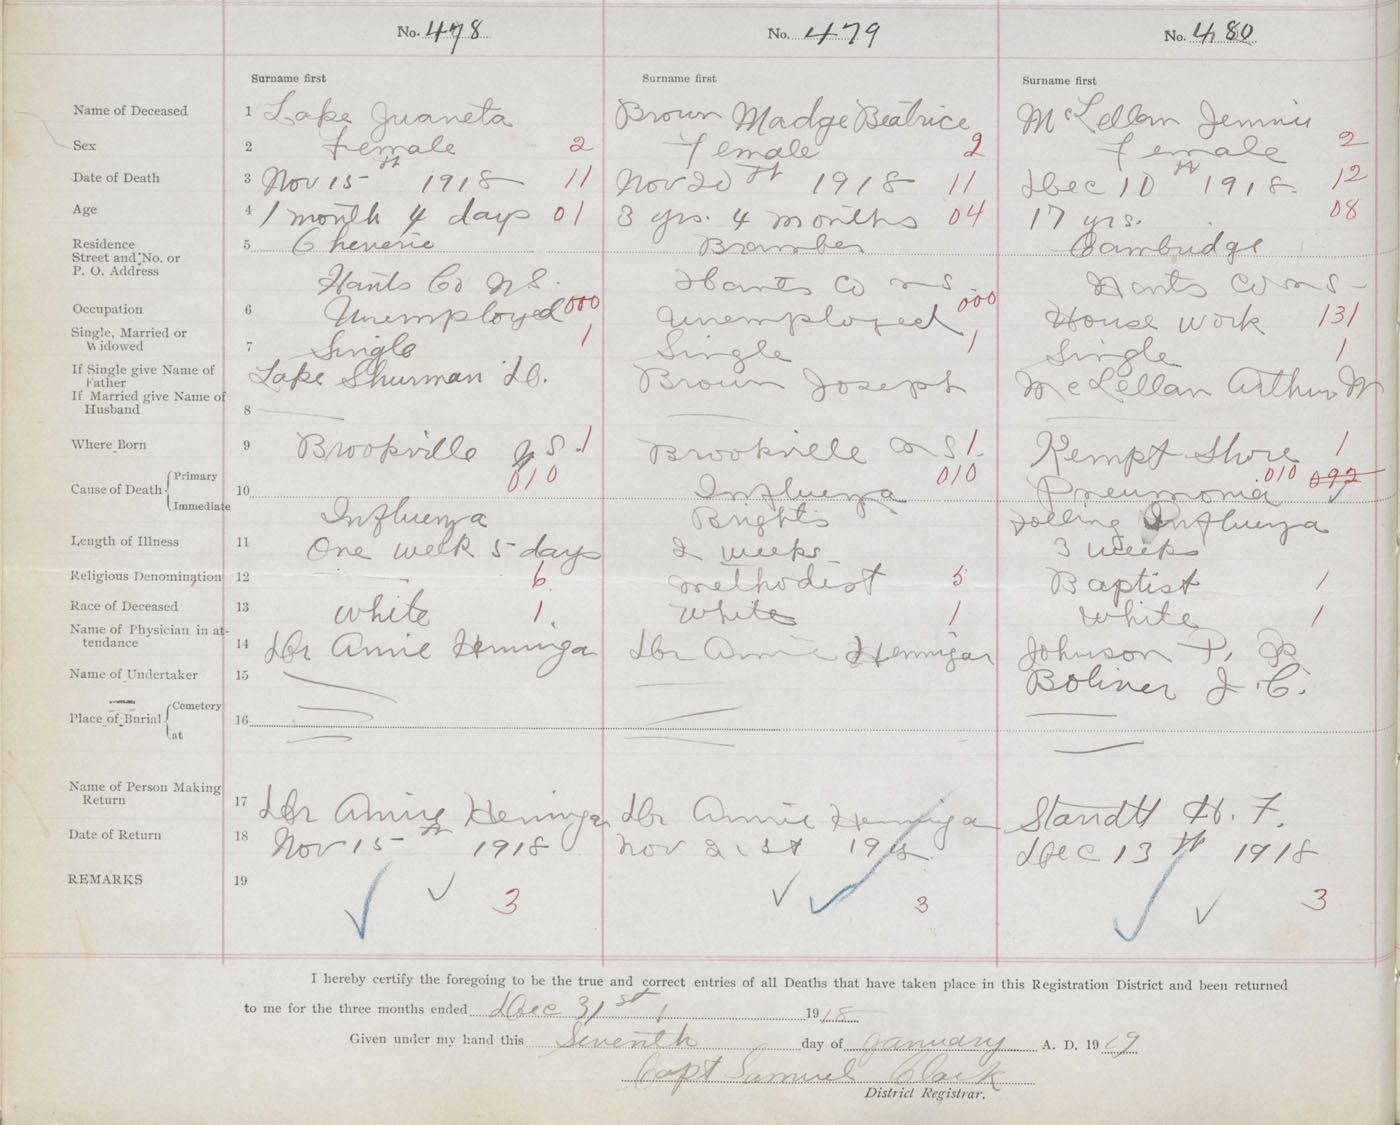 No. 478 No. 479 No. 480
Surname first Surname first Surname first
Name of Deceased 1 Lake Juaneta Brown Madge Beatrice McLellan Jennie
Sex 2 Female 2 Female 2 Female 2
Date of Death 3 Nov 15th 1918 11 Nov 20th 1918 11 Dec 10th 1918. 12
Age 4 1 month 4 days 01 3 yrs. 4 months 04 17 yrs. 08
Residence 5 Cheverie Bramber Cambridge
Street and No. or
P. O. Address Hants Co N S. Hants Co N S Hants Co N S
Occupation 6 Unemployed 000 Unemployed 000 House work 131
Single, Married or
Widowed 7 Single 1 Single 1 Single 1
If Single give Name of
Father Lake Shurman D. Brown Joseph McLellan Arthur W
If Married give Name of
Husband 8
Where Born 9 Brookville N S. 1 Brookville N S 1. Kempt Shore 1
010 010 010 092
Cause of Death Primary 10 Influenza Pneumonia
Immediate Influenza Brights Folling Influenza
Length of Illness 11 One week 5 days 2 weeks 3 weeks
Religious Denomination 12 6 Methodist 5 Baptist 1
Race of Deceased 13 White 1. White 1 White 1
Name of Physician in at-
tendance 14 Dr Annie Hennigar Dr Annie Hennigar Johnson P.
Name of Undertaker 15 Boliver J. C.
Place of Burial Cemetery 16
at
Name of Person Making
Return 17 Dr Annie Hennigar Dr Annie Hennigar H. F.
Date of Return 18 Nov 15th 1918 Nov 21st 1918. Dec 13th 1918
REMARKS 19 3 3 3
I hereby certify the foregoing to be the true and correct entries of all Deaths that have taken place in this Registration District and been returned
to me for the three months ended Dec 31st, 1918
Given under my hand this Seventh day of January A. D. 1919
Capt Samuel Clark
District Registrar.